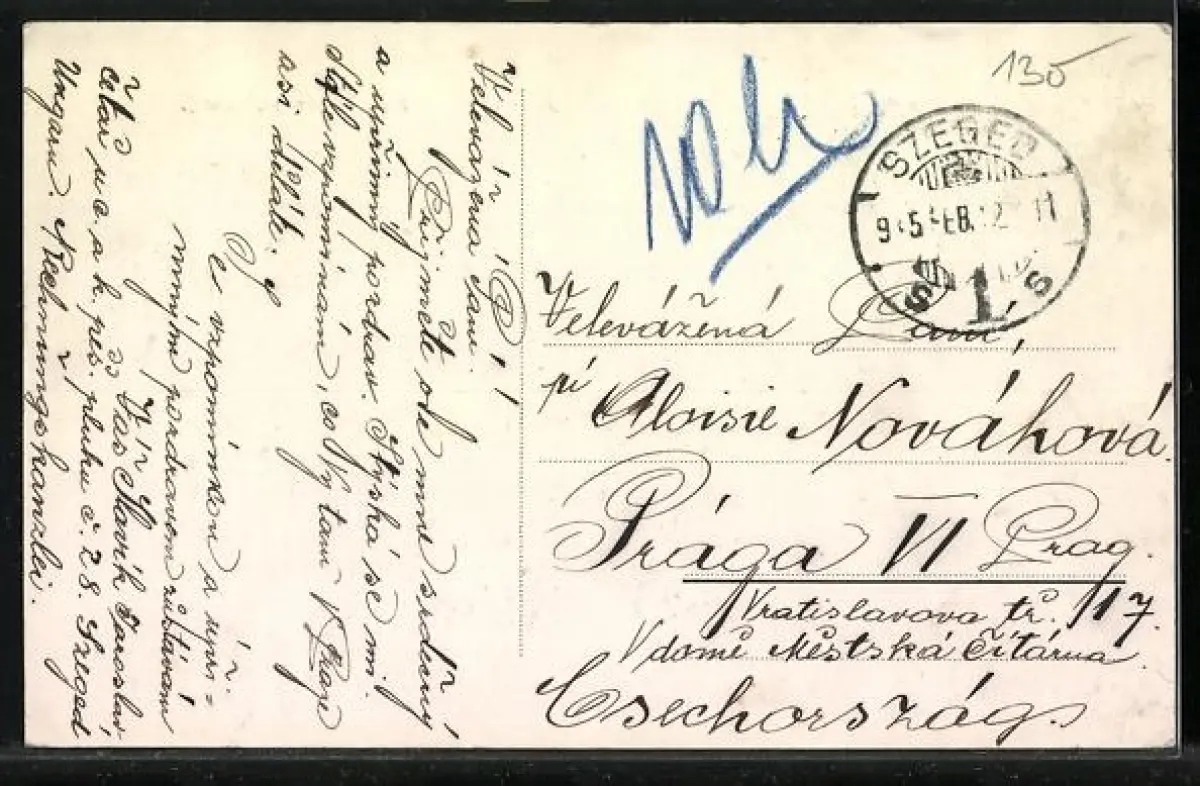 Velevážená Paní.
Přijměte ode mne srdečný
a upřímný pozdrav. Stýská se mi.
Stále vzpomínám, co Vy tam v Praze
asi děláte.
vzpomínkou a upří=
mným pozdravem zůstávám
Váš Slavík Jaroslav
četař u c. a k. pěš. pluku č. 28. Szeged
Ungarn. Rechnungskanzlei.
135
10 h
SZEGED
1
S S
Velevážená Paní,
pí Aloisie Nováková.
Prága VI Prag.
Vratislavova tř. 17.
V domě Městská Čítárna
Csehország.